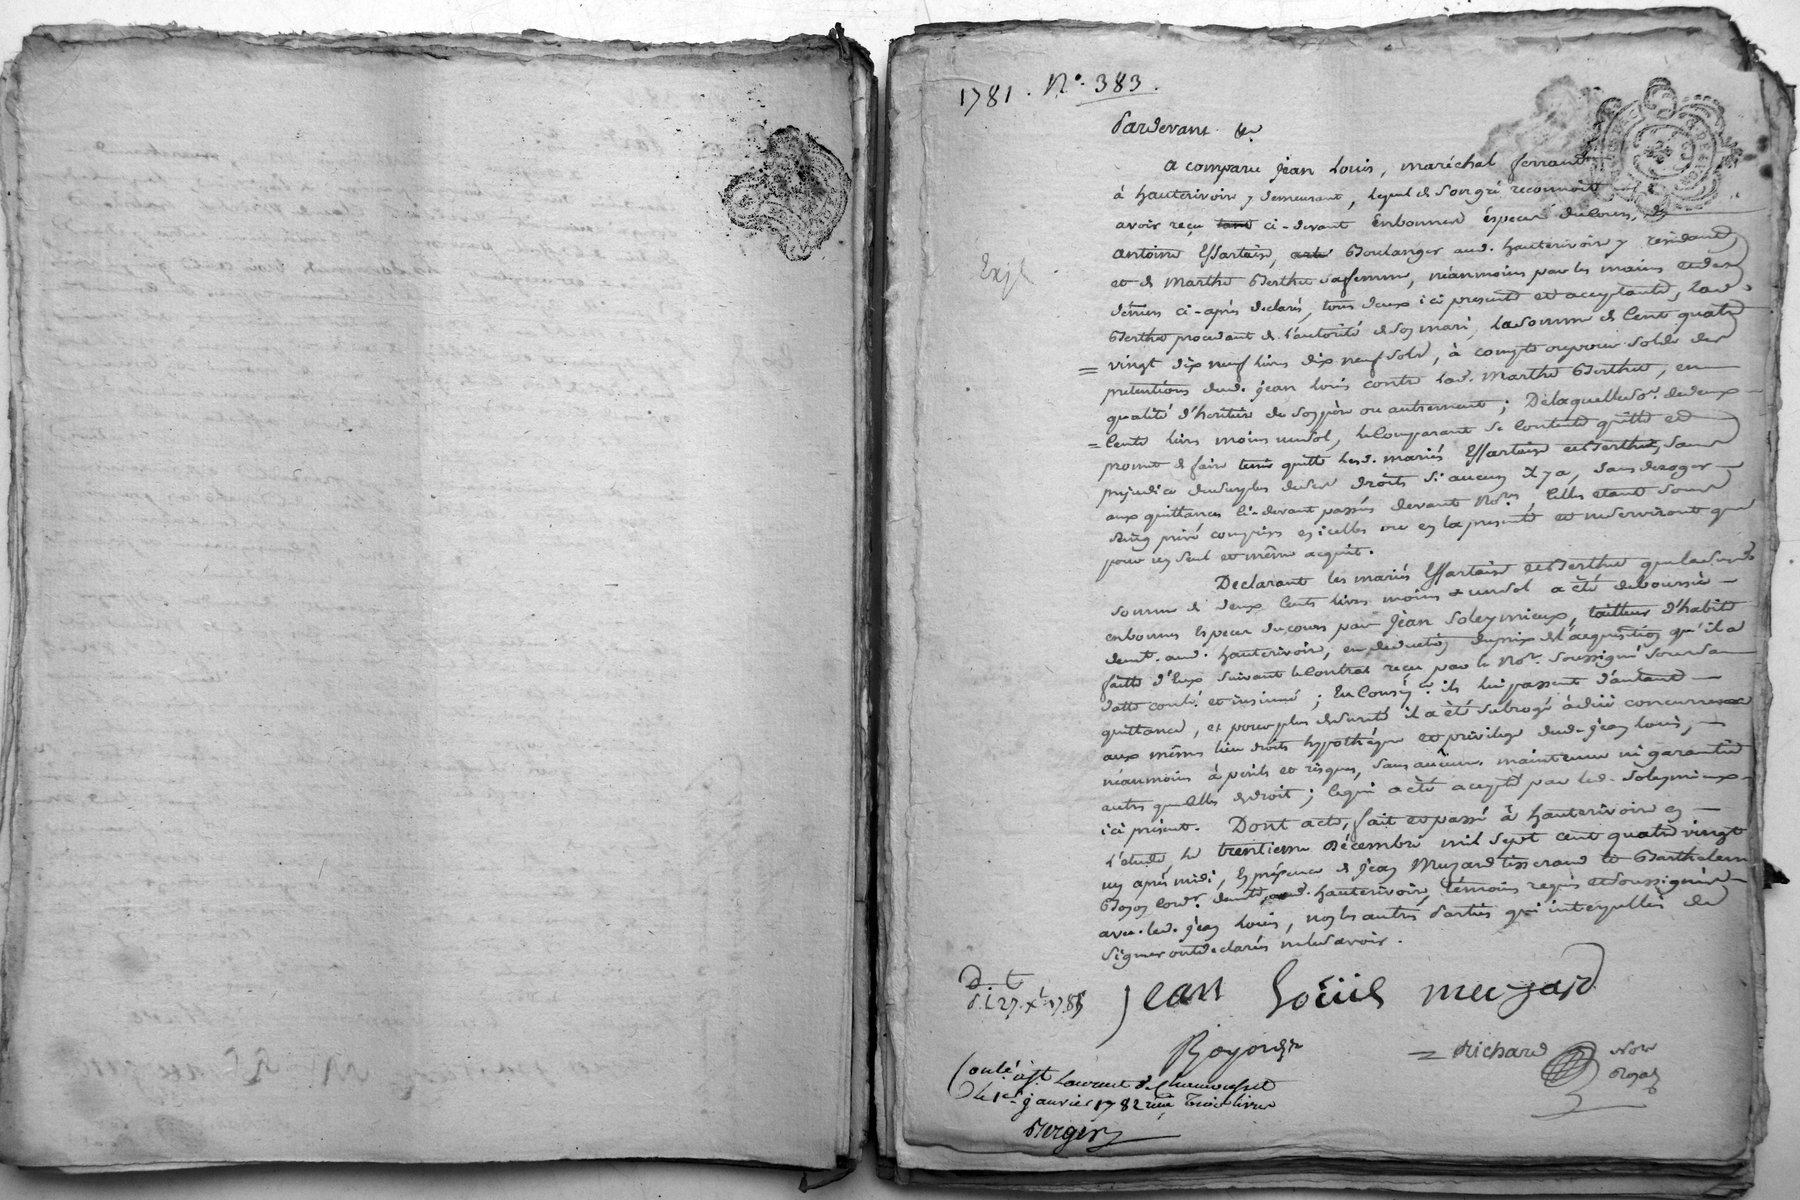 1781. N°. 383.
Pardevant &c
a comparu jean Louis, maréchal ferrand
à hauterivoire y demeurant, lequel de son gré reconnoit
avoir reçu ci-devant en bonnes éspeces du cours, de
antoine Essartaise, Boulanger aud. hauterivoire y residand
et de Marthe Berthet sa femme, néanmoins par les mains et des
déniers ci-après declarés, tous deux ici presents et acceptants, lad.
Berthet procedant de l'autorité de son mari, la somme de Cent quatre
vingt dix neuf livres dix neuf sols, à compte ou pour solde des
pretentions dud. jean Louis contre lad. Marthe Berthet, en
qualité d'heritiere de son père ou autrement; De laquelle so.e de deux
Cents livres moins un sol, le Comparant se Contente quitte et
promet de faire tenir quitte lesd. mariés Essartaise et Berthet, sans
prejudice du surplus de ses droits si aucun il y a, sans deroger
aux quittances ci-devant passées devant No.res, celles etant sous
seing privé comprises en icelles ou en la presente et ne serviront que
pour un seul et même acquit.
Declarant les mariés Essartaise et Berthet que la susd.e
somme de deux Cents livres moins un sol a été deboursée
en bonnes especes du cours par Jean Soleymieux, tailleur d'habits
demt. aud. hauterivoire, en deduction du prix de l'acquisition qu'il a
faitte d'Eux suivant le Contrat reçu par le No.re soussigné sous sa
datte conlé. et insinué; En Conség.ce ils lui passent d'autant
quittance, et pour plus de sureté il a été subrogé à düe concurrence
aux mêmes lieu droits hypothéque et privilege dud. jean Louis,
néanmoins à perils et risques, sans aucune maintenue ni garantie
autres que celles de droit; ce qui a été accepté par led. Soleymieux
ici présent. Dont acte, fait et passé à hauterivoire en
l'étude, le trentieme Décembre mil sept cent quatre vingt
un après midi, En présence de Jean Muzard tisserand et Barthelemi
Boyon cord.r demts. aud. hauterivoire, témoins requis et soussignés
avec led. jean Louis, non les autres Parties qui interpellées de
signer ont declarés ne le savoir.
jean Loüis muzard
Boyon
Richard Nore Royal
Conlé. à St. Laurent de Chamousset
le 1er janvier 1782 reçu trois livres
Berger